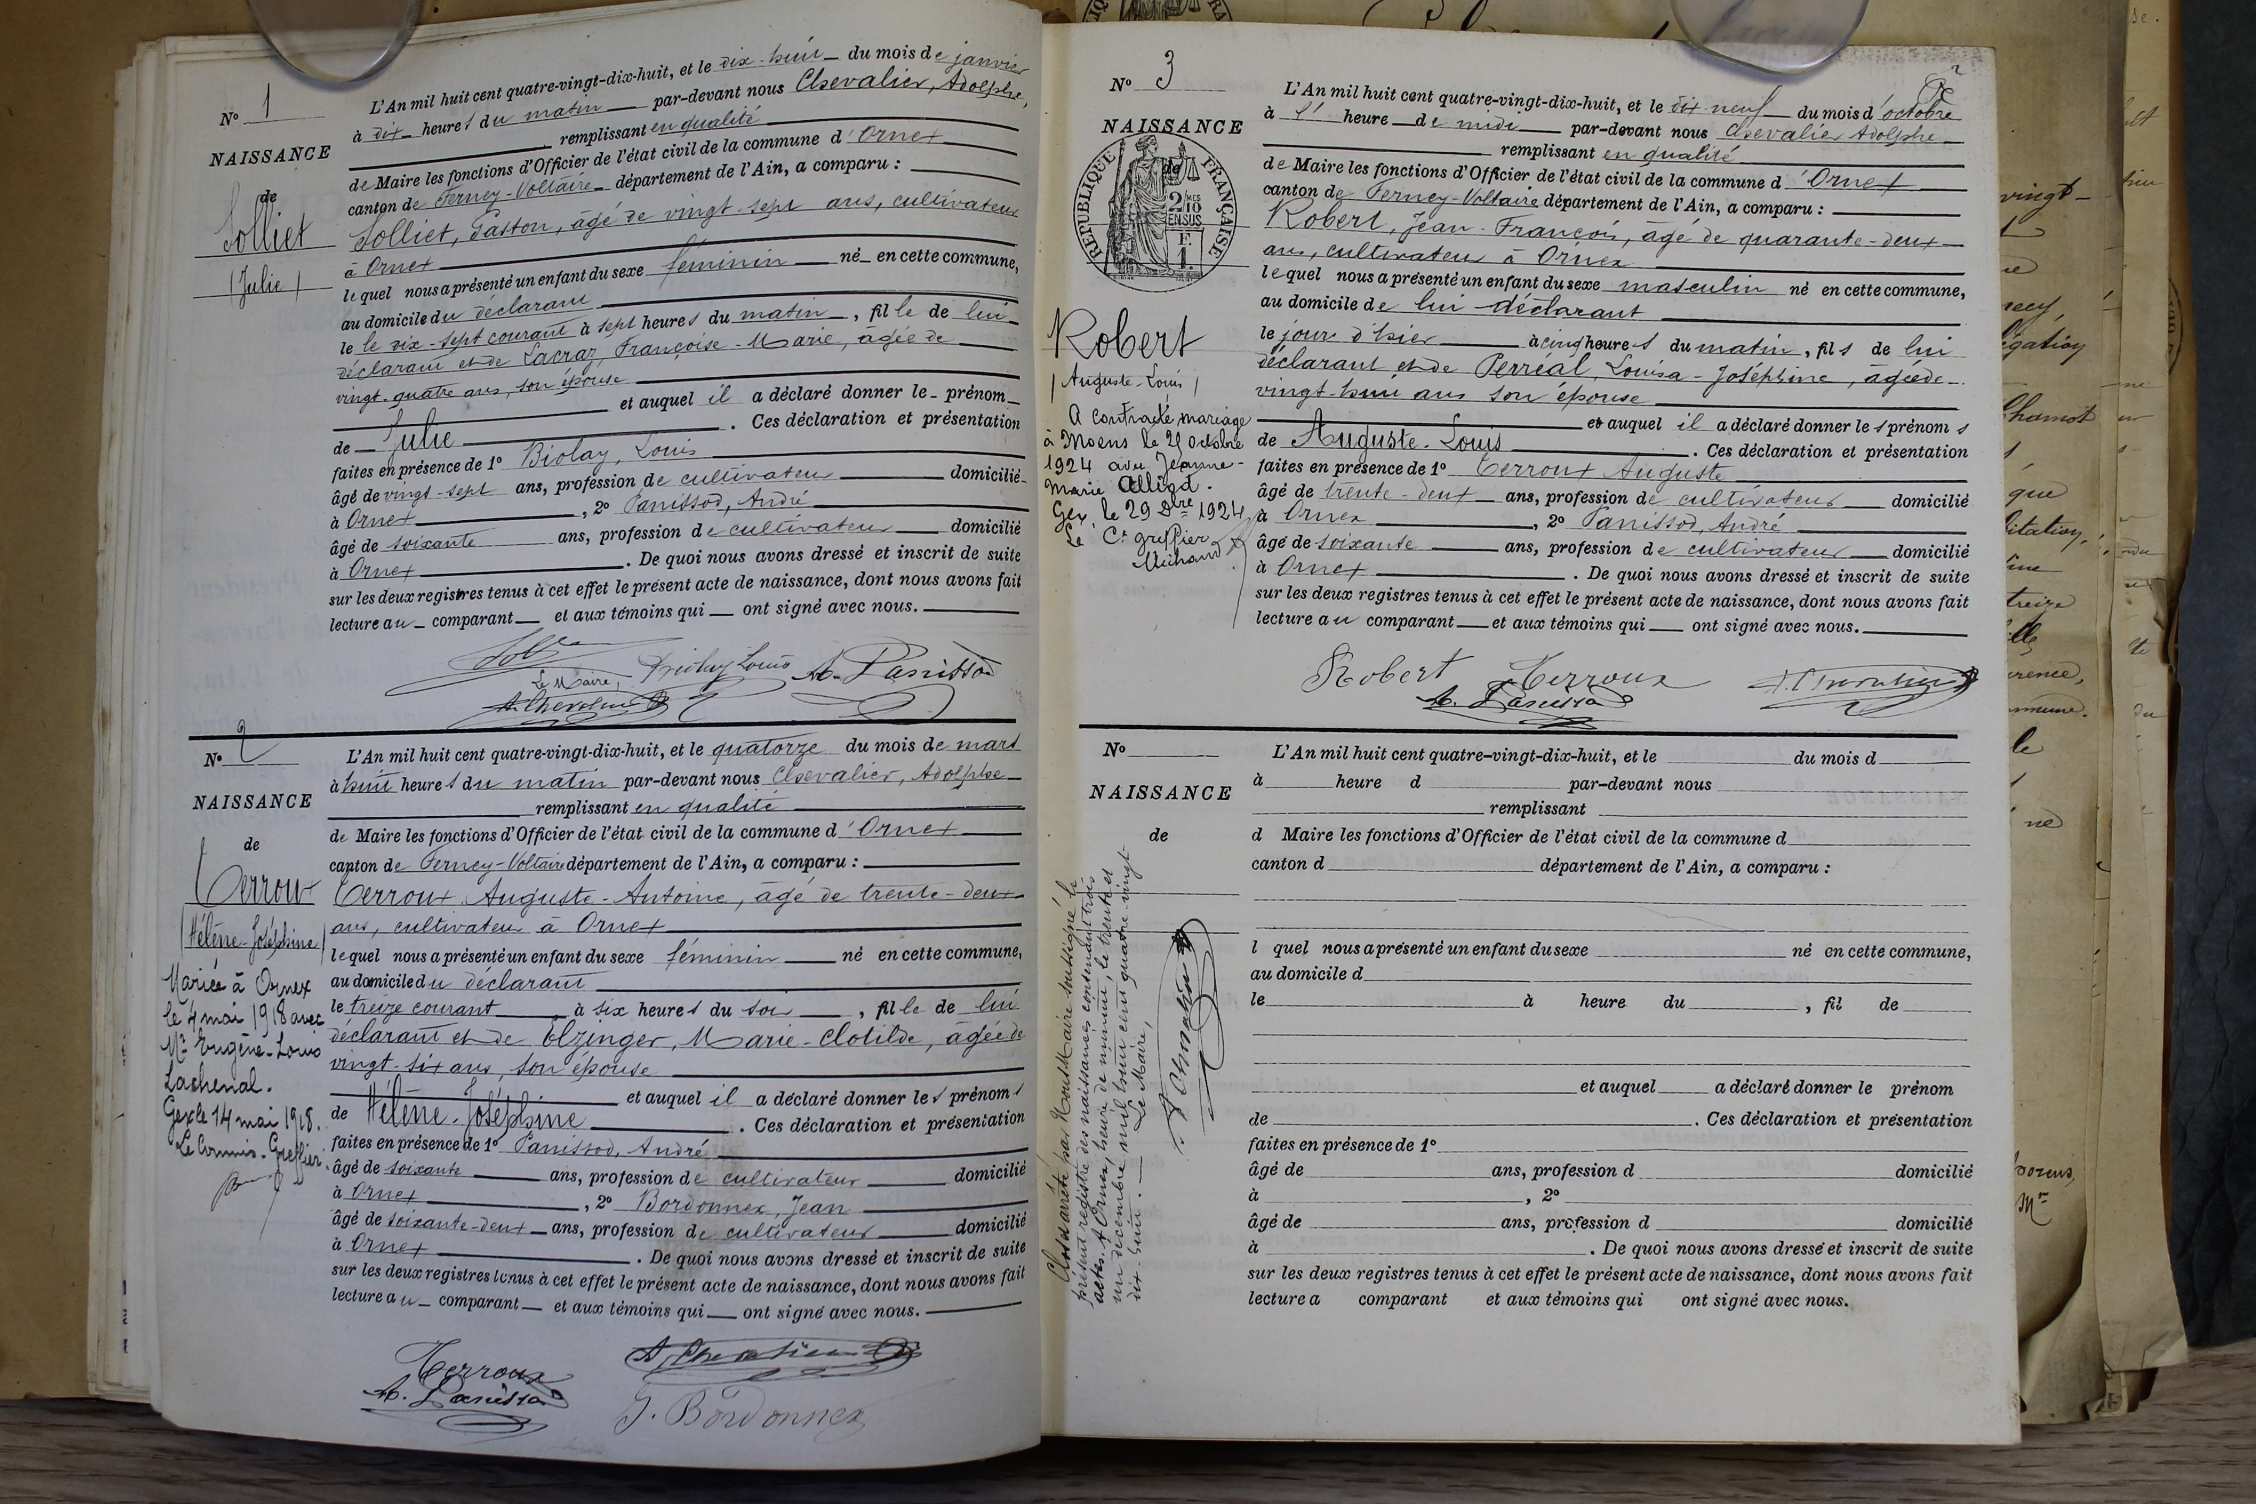 N° 1
NAISSANCE
de
Solliet
(Julie)
L'An mil huit cent quatre-vingt-dix-huit, et le dix-huit du mois de janvier
à dix heures du matin par-devant nous Chevalier, Adolphe,
remplissant en qualité
de Maire les fonctions d'Officier de l'état civil de la commune d'Ornex
canton de Ferney-Voltaire département de l'Ain, a comparu :
Solliet, Gaston, âgé de vingt-sept ans, cultivateur
à Ornex
lequel nous a présenté un enfant du sexe féminin né en cette commune,
au domicile du déclarant
le le dix-sept courant à sept heures du matin, fille de lui
déclarant et de Lacraz, Françoise-Marie, âgée de
vingt-quatre ans, son épouse
et auquel il a déclaré donner le prénom
de Julie. Ces déclaration et présentation
faites en présence de 1° Biolay, Louis
âgé de vingt-sept ans, profession de cultivateur domicilié
à Ornex, 2° Panissod, André
âgé de soixante ans, profession de cultivateur domicilié
à Ornex. De quoi nous avons dressé et inscrit de suite
sur les deux registres tenus à cet effet le présent acte de naissance, dont nous avons fait
lecture au comparant et aux témoins qui ont signé avec nous.
Biolay Louis A. Panissod
Le Maire,
A. Chevalier
N° 2
NAISSANCE
de
Terroux
(Hélène-Joséphine)
Mariée à Ornex
le 4 mai 1918 avec
Mr Eugène-Louis
Lachenal.
Gex le 14 mai 1918.
Le Commis-Greffier.
L'An mil huit cent quatre-vingt-dix-huit, et le quatorze du mois de mars
à huit heures du matin par-devant nous Chevalier, Adolphe
remplissant en qualité
de Maire les fonctions d'Officier de l'état civil de la commune d'Ornex
canton de Ferney-Voltaire département de l'Ain, a comparu :
Terroux Auguste-Antoine, âgé de trente-deux
ans, cultivateur à Ornex
lequel nous a présenté un enfant du sexe féminin né en cette commune,
au domicile du déclarant
le treize courant à six heures du soir, fille de lui
déclarant et de Elzinger, Marie-Clotilde, âgée de
vingt-six ans, son épouse
et auquel il a déclaré donner les prénoms
de Hélène-Joséphine. Ces déclaration et présentation
faites en présence de 1° Panissod, André
âgé de soixante ans, profession de cultivateur domicilié
à Ornex, 2° Bordonnex, Jean
âgé de soixante-deux ans, profession de cultivateur domicilié
à Ornex. De quoi nous avons dressé et inscrit de suite
sur les deux registres tenus à cet effet le présent acte de naissance, dont nous avons fait
lecture au comparant et aux témoins qui ont signé avec nous.
Terroux A. Chevalier
A. Panissod
J. Bordonnex
N° 3
NAISSANCE
de
RÉPUBLIQUE FRANÇAISE
2/10 MES
EN SUS
Robert
(Auguste-Louis)
A contracté mariage
à Moëns le 21 octobre
1924 avec Jeanne-
Marie Alliod.
Gex, le 29 8bre 1924
Le Cs greffier
Michaud
L'An mil huit cent quatre-vingt-dix-huit, et le dix-neuf du mois d'octobre
à l' heure de midi par-devant nous Chevalier Adolphe
remplissant en qualité
de Maire les fonctions d'Officier de l'état civil de la commune d'Ornex
canton de Ferney-Voltaire département de l'Ain, a comparu :
Robert, Jean-François, âgé de quarante-deux
ans, cultivateur à Ornex
lequel nous a présenté un enfant du sexe masculin né en cette commune,
au domicile de lui déclarant
le jour d'hier à cinq heures du matin, fils de lui
déclarant et de Perréal, Louisa-Joséphine, âgée de
vingt-huit ans son épouse
et auquel il a déclaré donner les prénoms
de Auguste-Louis. Ces déclaration et présentation
faites en présence de 1° Terroux Auguste
âgé de trente-deux ans, profession de cultivateur domicilié
à Ornex, 2° Panissod, André
âgé de soixante ans, profession de cultivateur domicilié
à Ornex. De quoi nous avons dressé et inscrit de suite
sur les deux registres tenus à cet effet le présent acte de naissance, dont nous avons fait
lecture au comparant et aux témoins qui ont signé avec nous.
Robert Terroux A. Chevalier
A. Panissod
N°
NAISSANCE
de
Clos et arrêté par Nous Maire soussigné le
présent registre des naissances contenant trois
actes. A Ornex, heure de minuit, le trente et
un décembre mil huit cent quatre-vingt-
dix-huit.
Le Maire,
A. Chevalier
L'An mil huit cent quatre-vingt-dix-huit, et le du mois d
à heure d par-devant nous
remplissant
d Maire les fonctions d'Officier de l'état civil de la commune d
canton d département de l'Ain, a comparu :
l quel nous a présenté un enfant du sexe né en cette commune,
au domicile d
le à heure du , fil de
et auquel a déclaré donner le prénom
de . Ces déclaration et présentation
faites en présence de 1°
âgé de ans, profession d domicilié
à , 2°
âgé de ans, profession d domicilié
à . De quoi nous avons dressé et inscrit de suite
sur les deux registres tenus à cet effet le présent acte de naissance, dont nous avons fait
lecture a comparant et aux témoins qui ont signé avec nous.